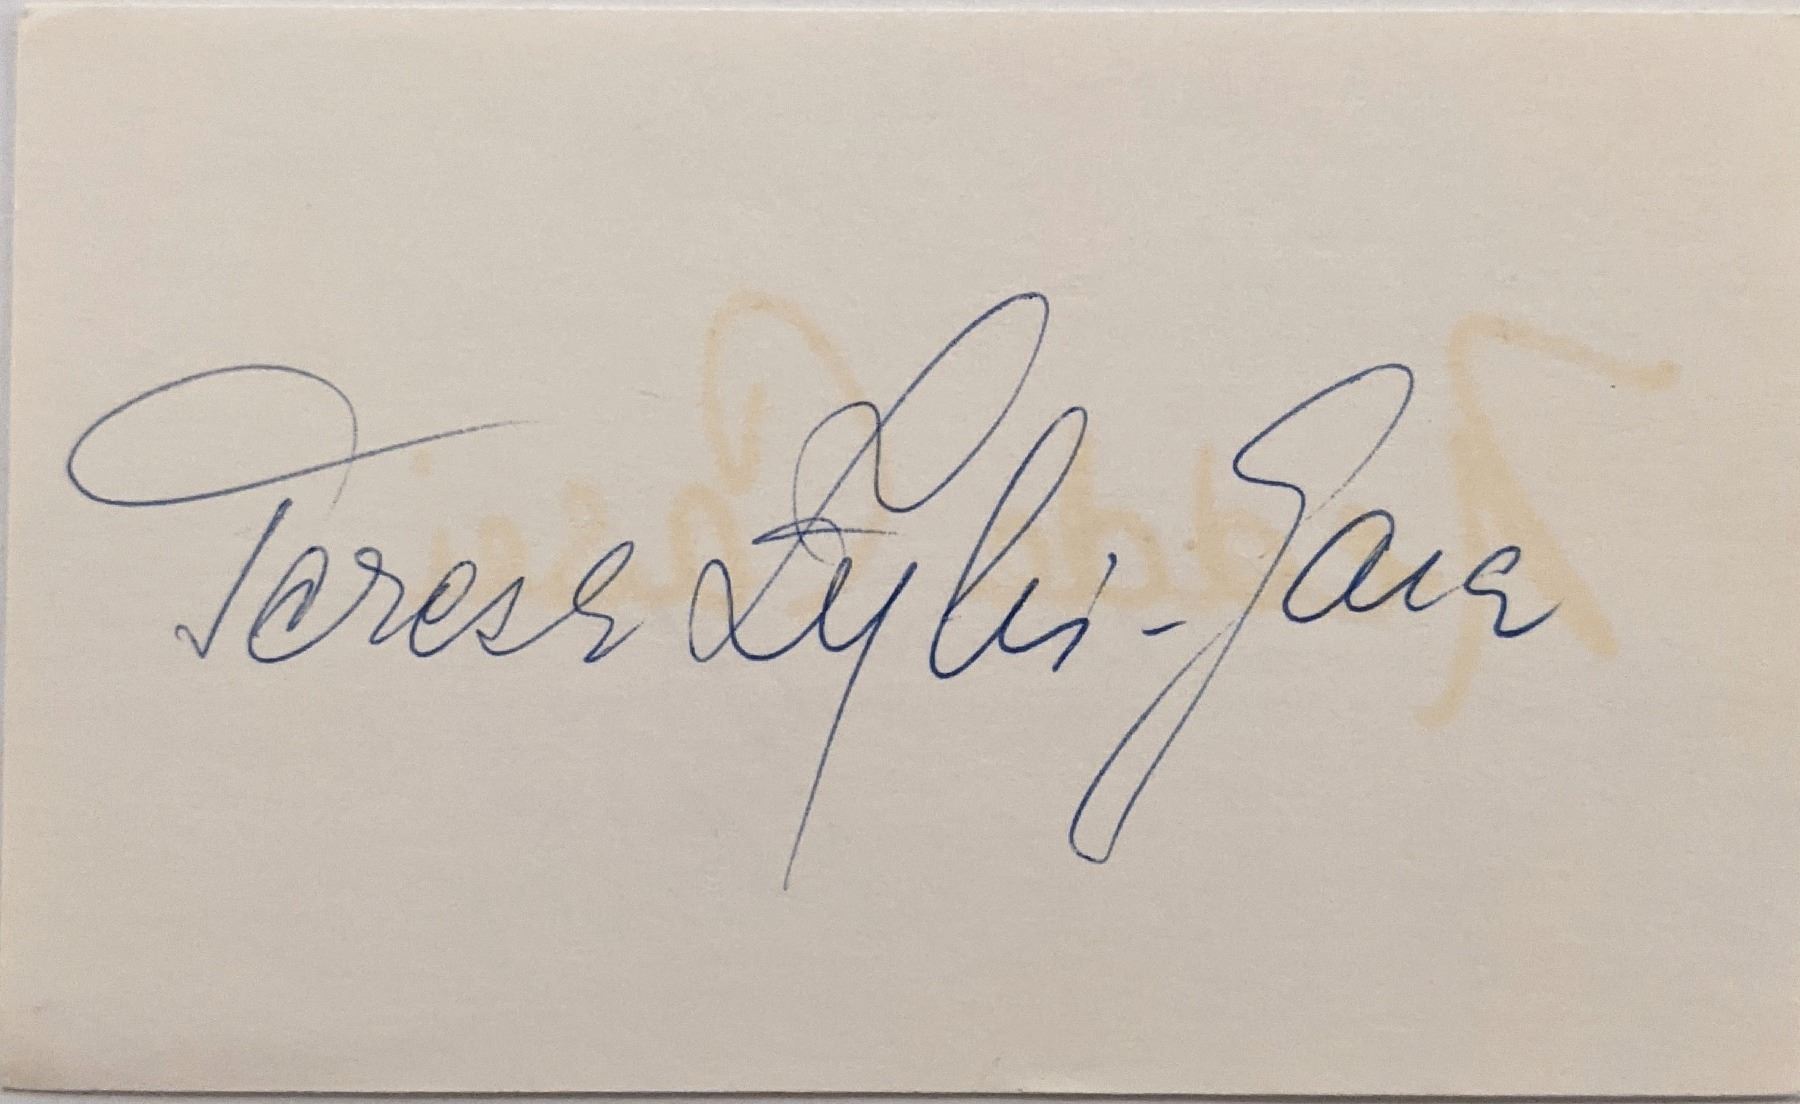 Teresa Żylis-Gara